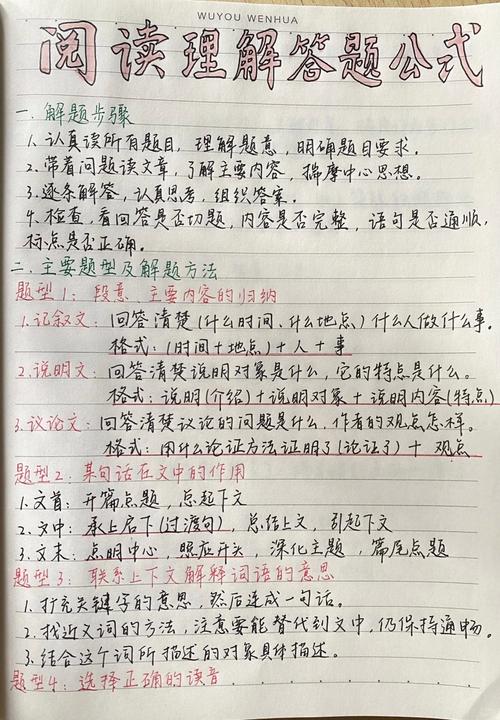 WUYOU WENHUA
阅读理解答题公式
一. 解题步骤
1. 认真读所有题目, 理解题意, 明确题目要求.
2. 带着问题读文章, 了解主要内容, 揣摩中心思想.
3. 逐条解答, 认真思考, 组织答案.
4. 检查, 看回答是否切题, 内容是否完整, 语句是否通顺,
标点是否正确。
二. 主要题型及解题方法
题型1: 段意、主要内容的归纳
1. 记叙文: 回答清楚(什么时间、什么地点)什么人做什么事.
格式: (时间+地点)+人+事
2. 说明文: 回答清楚说明对象是什么, 它的特点是什么。
格式: 说明(介绍)+说明对象+说明内容(特点)
3. 议论文: 回答清楚议论的问题是什么, 作者的观点怎样。
格式: 用什么论证方法证明了(论证了)+观点
题型2: 某句话在文中的作用
1. 文首: 开篇点题, 总起下文
2. 文中: 承上启下(过渡句), 总结上文, 引起下文
3. 文末: 点明中心, 照应开头, 深化主题, 篇尾点题
题型3: 联系上下文解释词语的意思
1. 扩充关键字的意思, 然后连成一句话。
2. 找近义词的方法, 注意要能替代到文中, 仍保持通畅。
3. 结合这个词所描述的对象具体描述。
题型4: 选择正确的读音